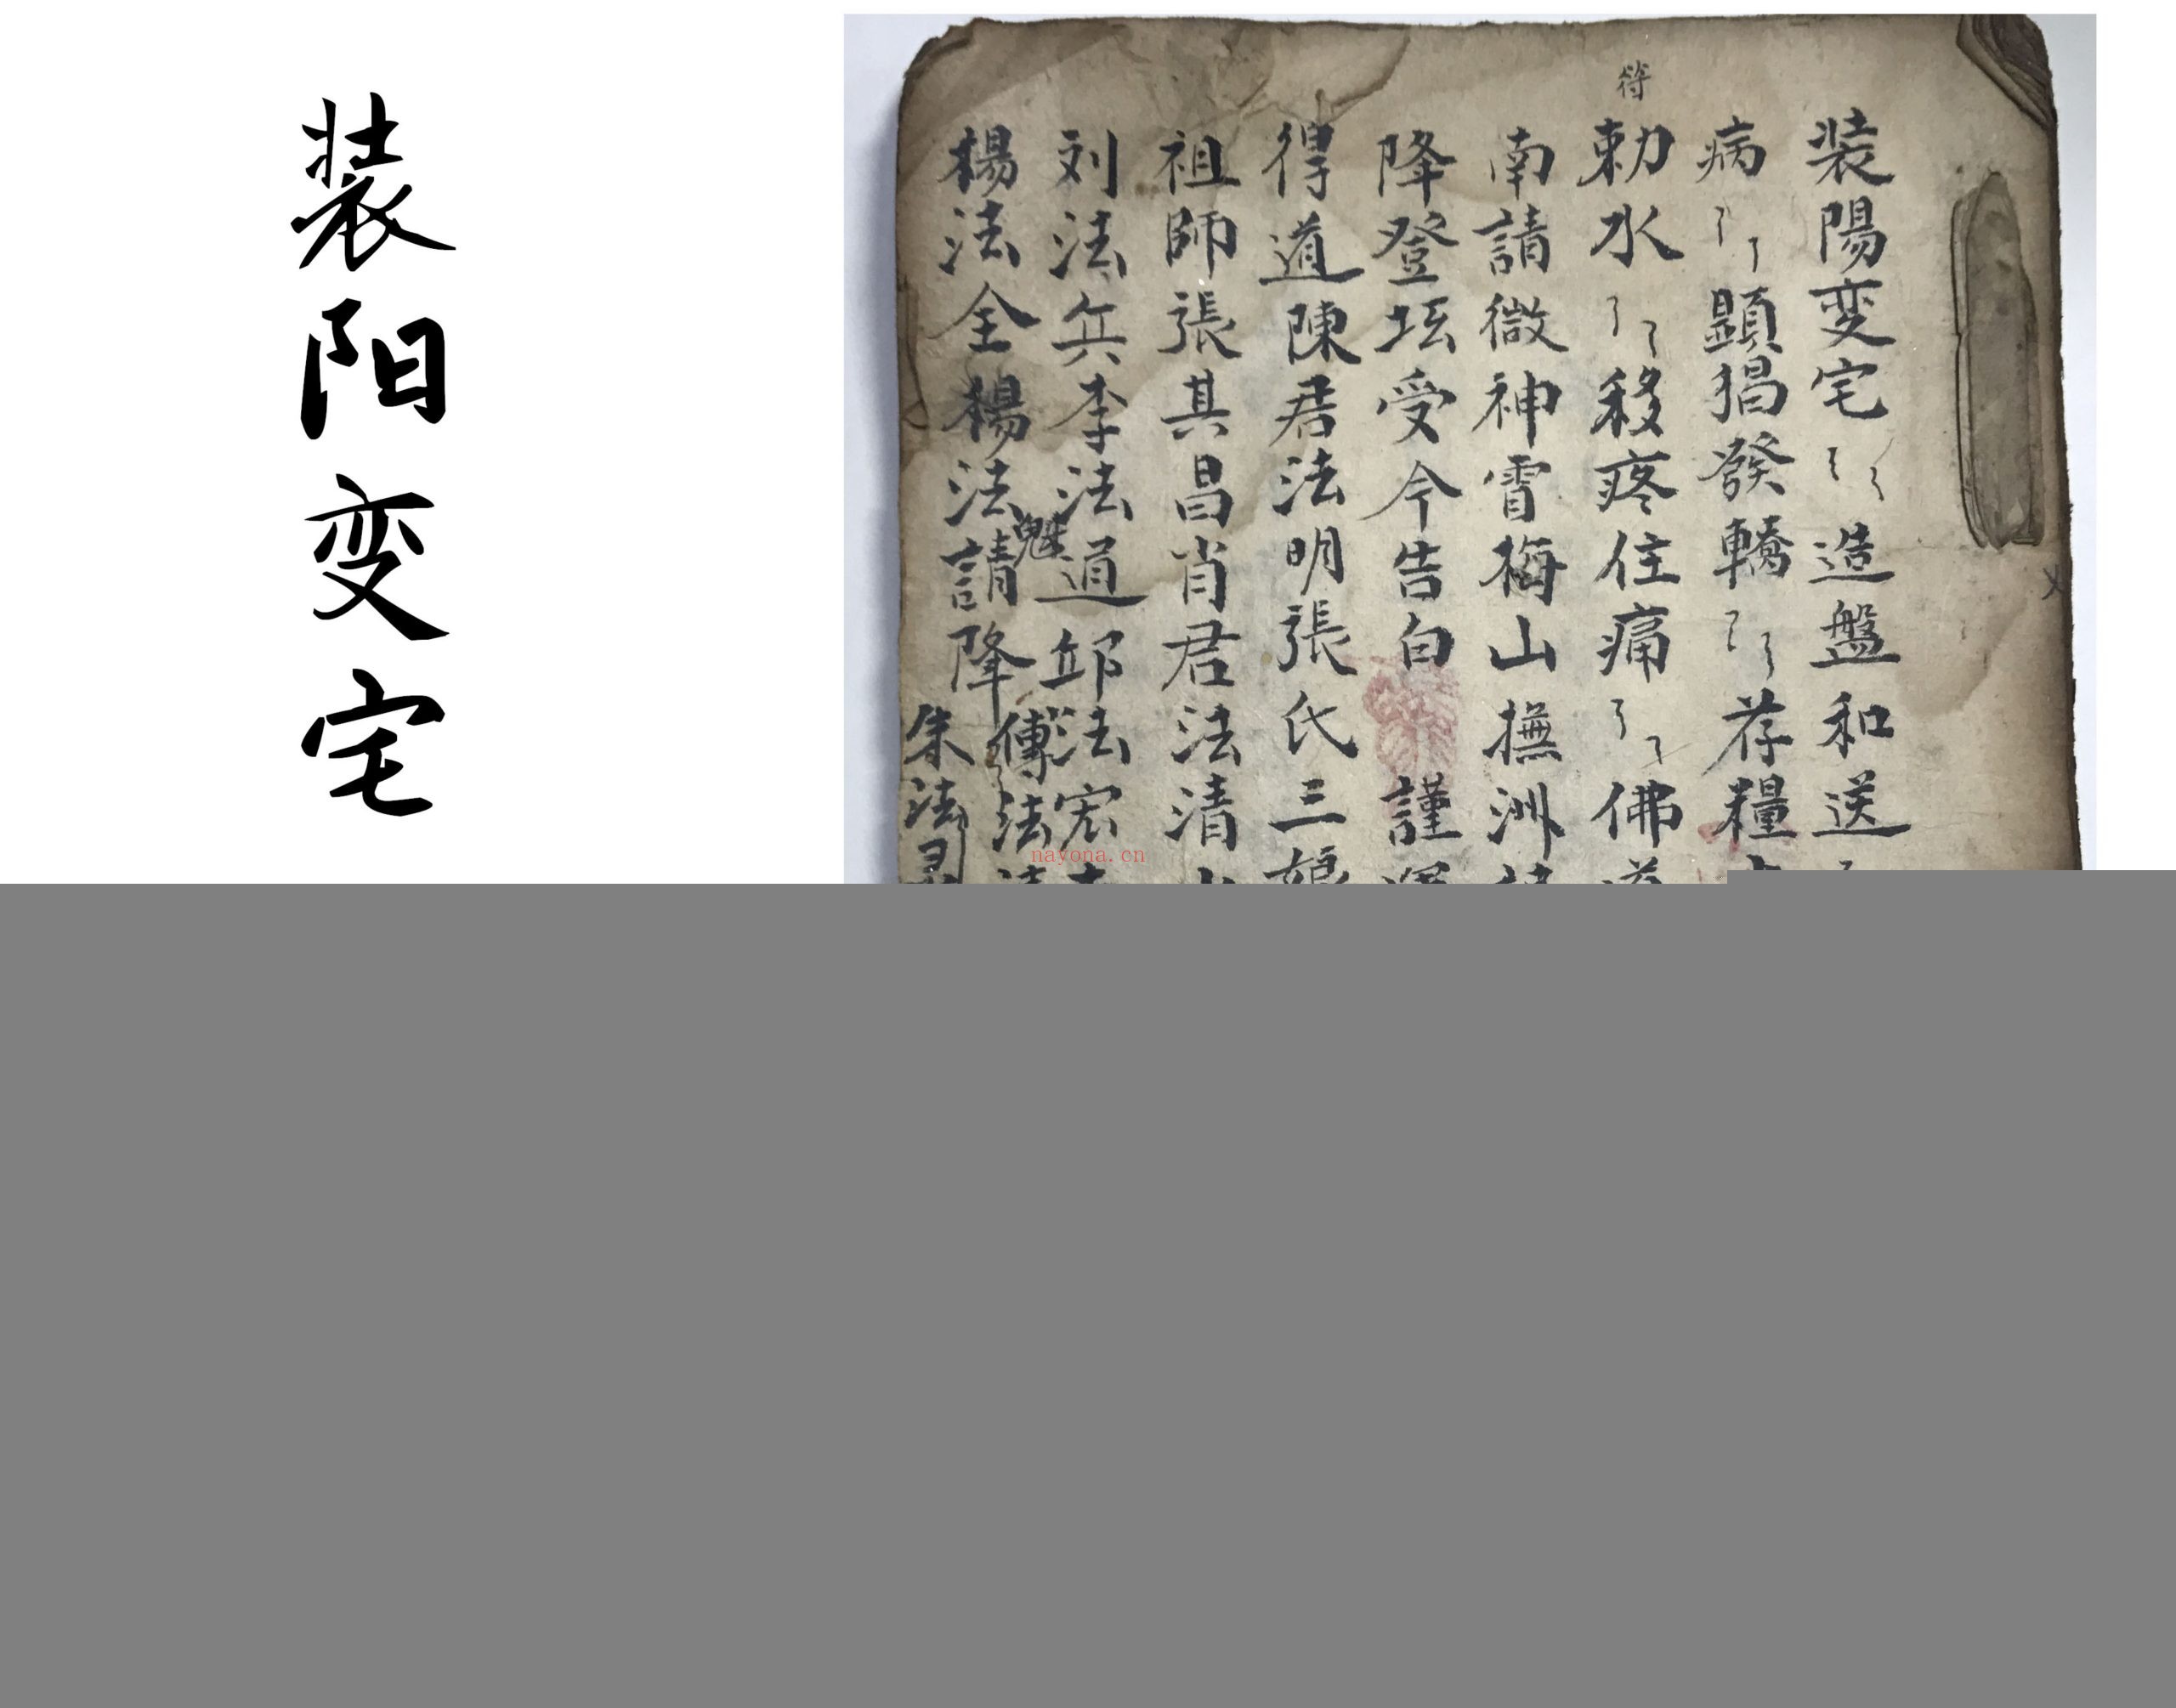 装阳变宅
符
装陽变宅〻造盤和送
病〻顕猖發轎〻荐糧
勅水〻移疼住痛〻佛
南請微神霄梅山撫洲
降登坛受今告白 謹
得道陳君法明張氏三娘
祖師張其昌肖君法清
刘法兵李法道邱法宏
魁
楊法全楊法請降
傳法
朱法
nayona.cn